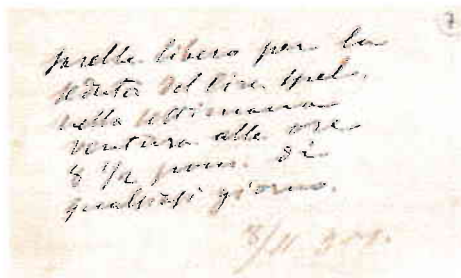 7
sarebbe libero per la
seduta del
nella settimana
ventura alle ore
8 1/2 pom. di
qualsiasi giorno.
8/11 901.